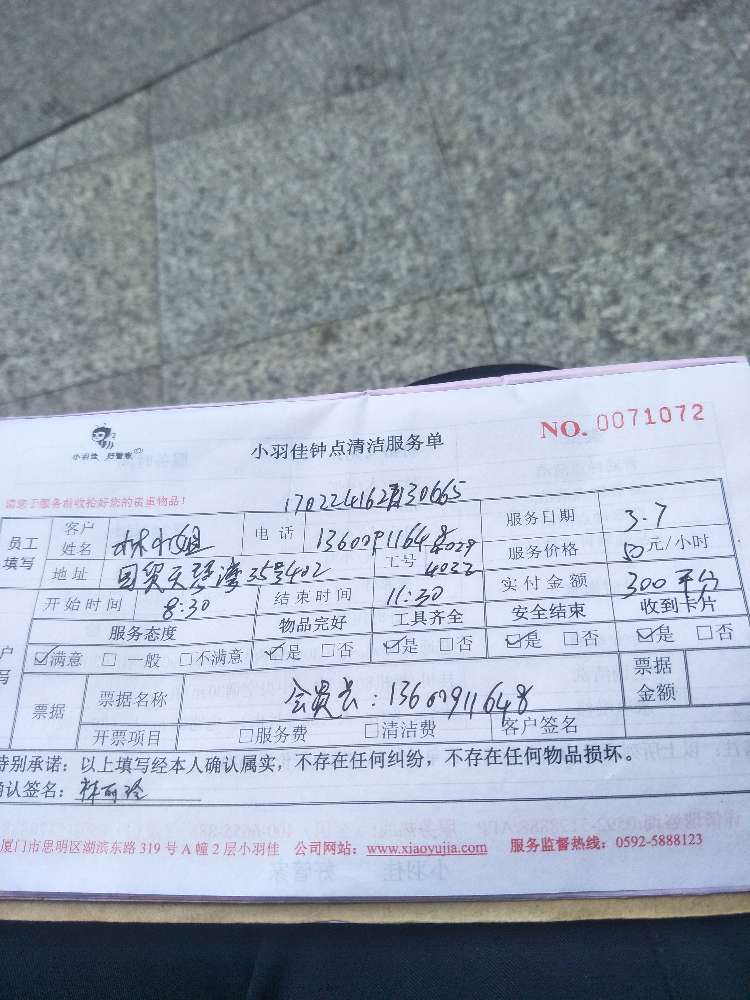 小羽佳 好管家
小羽佳钟点清洁服务单
NO. 0071072
请您于服务前收拾好您的贵重物品!
员工填写 客户姓名 林小姐 电话 13607911648 服务日期 3.7
地址 35号402 工号 4029 4033 服务价格 50元/小时
开始时间 8:30 结束时间 11:30 实付金额 300 平分
服务态度 物品完好 工具齐全 安全结束 收到卡片
☑满意 □一般 □不满意 ☑是 □否 ☑是 □否 ☑是 □否 ☑是 □否
票据 票据名称 会员卡:13607911648 票据金额
开票项目 □服务费 □清洁费 客户签名
特别承诺:以上填写经本人确认属实,不存在任何纠纷,不存在任何物品损坏。
确认签名:林丽玲
厦门市思明区湖滨东路 319 号 A 幢 2 层小羽佳 公司网站:www.xiaoyujia.com 服务监督热线:0592-5888123